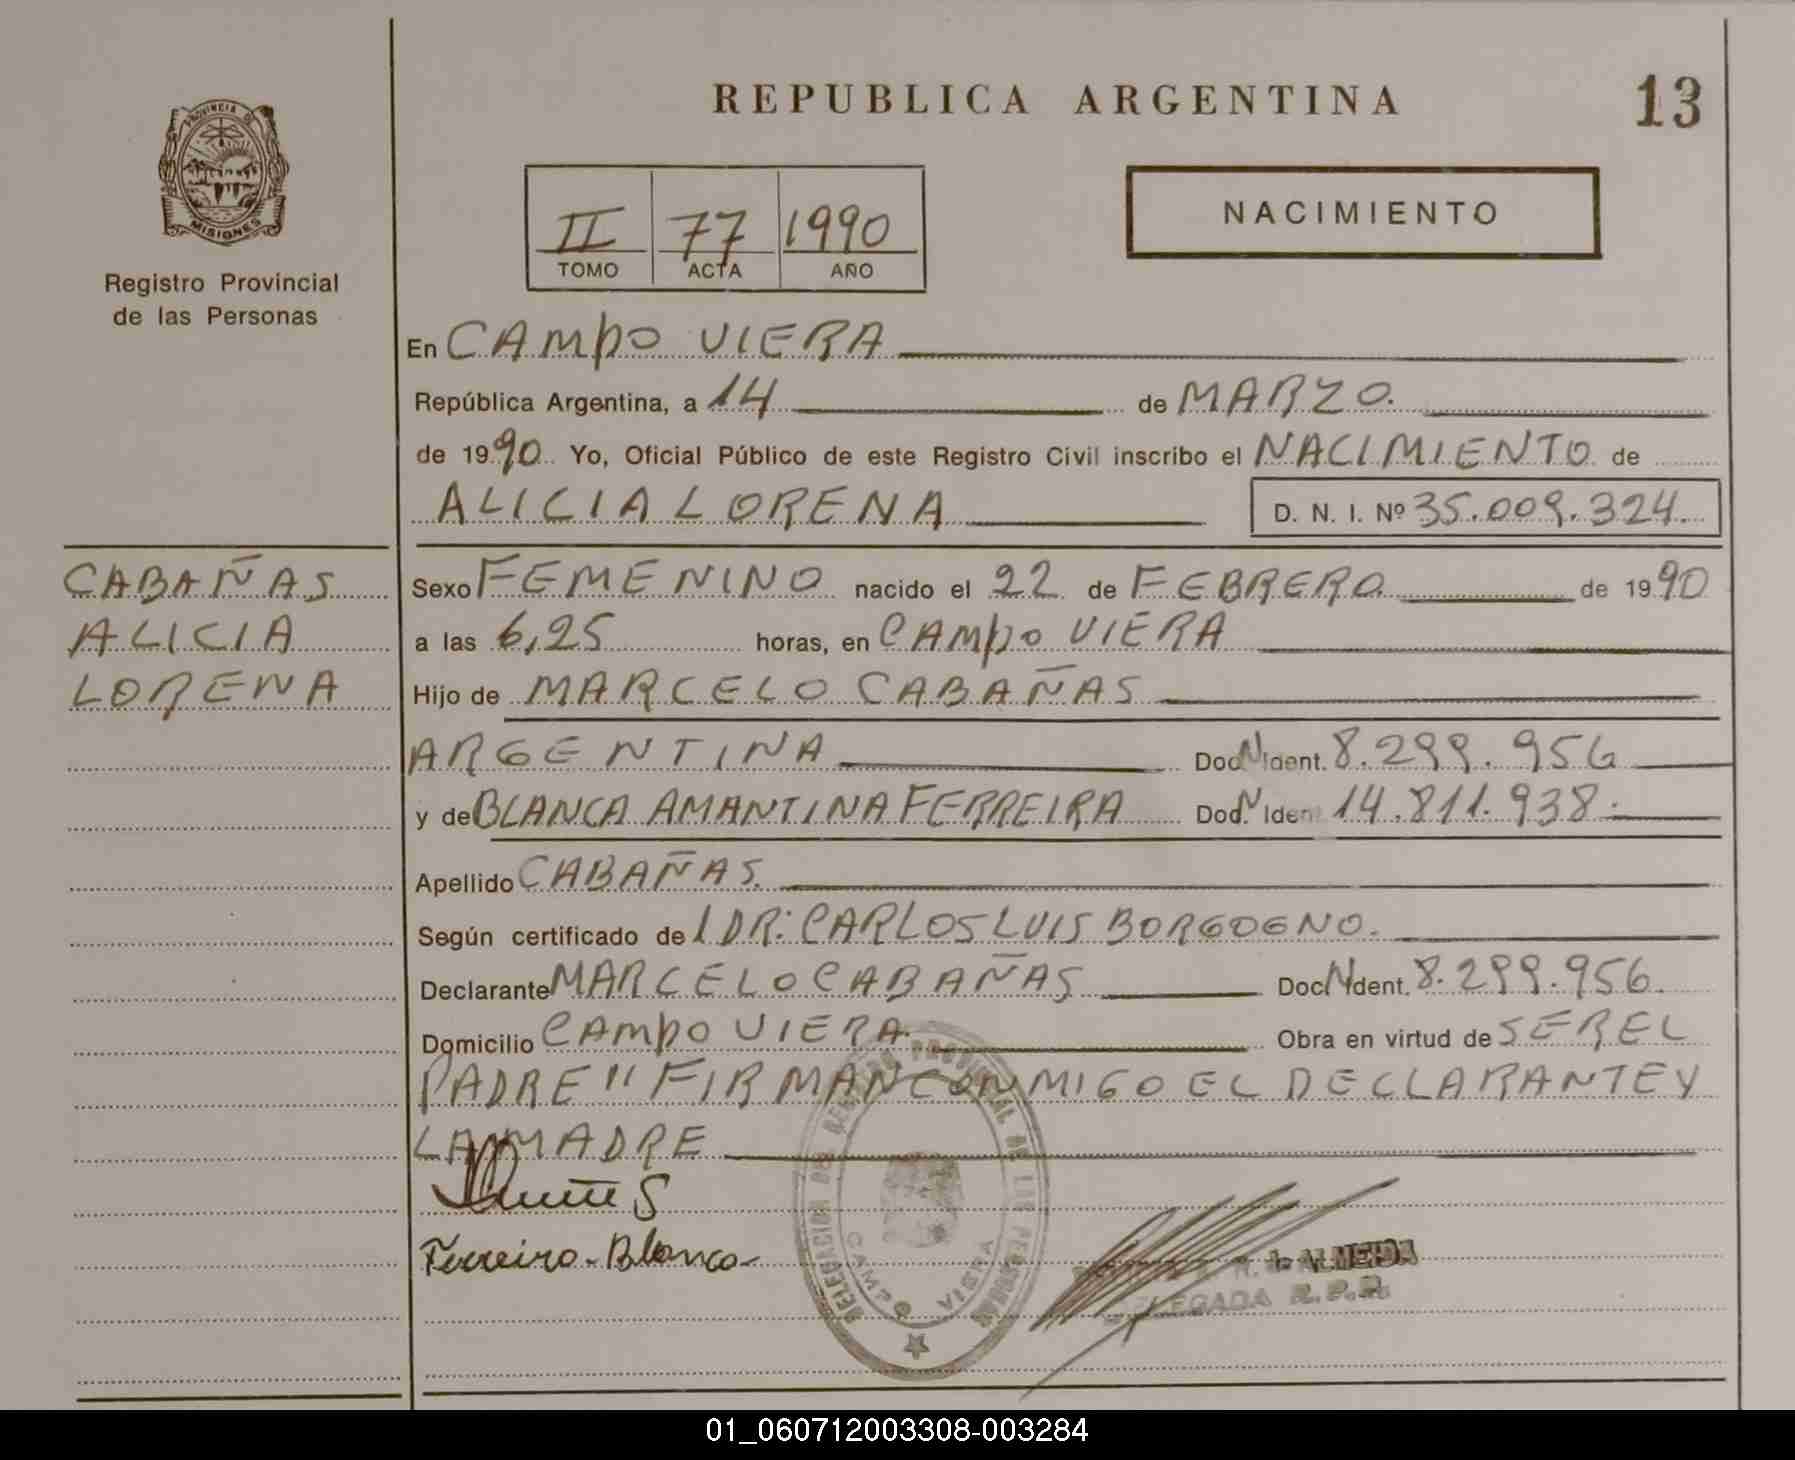 REPUBLICA ARGENTINA
13
PROVINCIA DE
MISIONES
Registro Provincial
de las Personas
II 77 1990
TOMO ACTA AÑO
NACIMIENTO
En CAMPO VIERA
República Argentina, a 14 de MARZO.
de 1990 Yo, Oficial Público de este Registro Civil inscribo el NACIMIENTO de
ALICIA LORENA D. N. I. Nº 35.009.324
CABAÑAS
ALICIA
LORENA
Sexo FEMENINO nacido el 22 de FEBRERO de 1990
a las 6,25 horas, en CAMPO VIERA
Hijo de MARCELO CABAÑAS
ARGENTINA Doc. N Ident. 8.299.956
y de BLANCA AMANTINA FERREIRA Doc. N Ident 14.811.938.
Apellido CABAÑAS.
Según certificado del DR: CARLOS LUIS BORGOGNO.
Declarante MARCELO CABAÑAS Doc. N Ident. 8.299.956.
Domicilio CAMPO VIERA. Obra en virtud de SER EL
PADRE" FIRMAN CONMIGO EL DECLARANTE Y
LA MADRE
Ferreira-Blanca
DELEGACION DEL REGISTRO PROVINCIAL DE LAS PERSONAS
CAMPO VIERA
ALMEIDA
DELEGADA R.P.P.
01_060712003308-003284